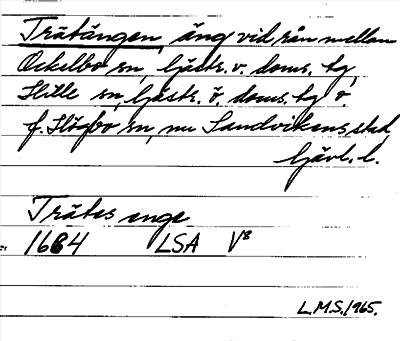 Trätängen, äng vid rån mellan
Ockelbo sn, Gästr. v. doms. tg,
Hille sn, Gästr. ö. doms. tg o.
f. Högbo sn, nu Sandvikens stad,
Gävl. l.
Trätes enge
1684 LSA V⁸
L.M.S. 1965.